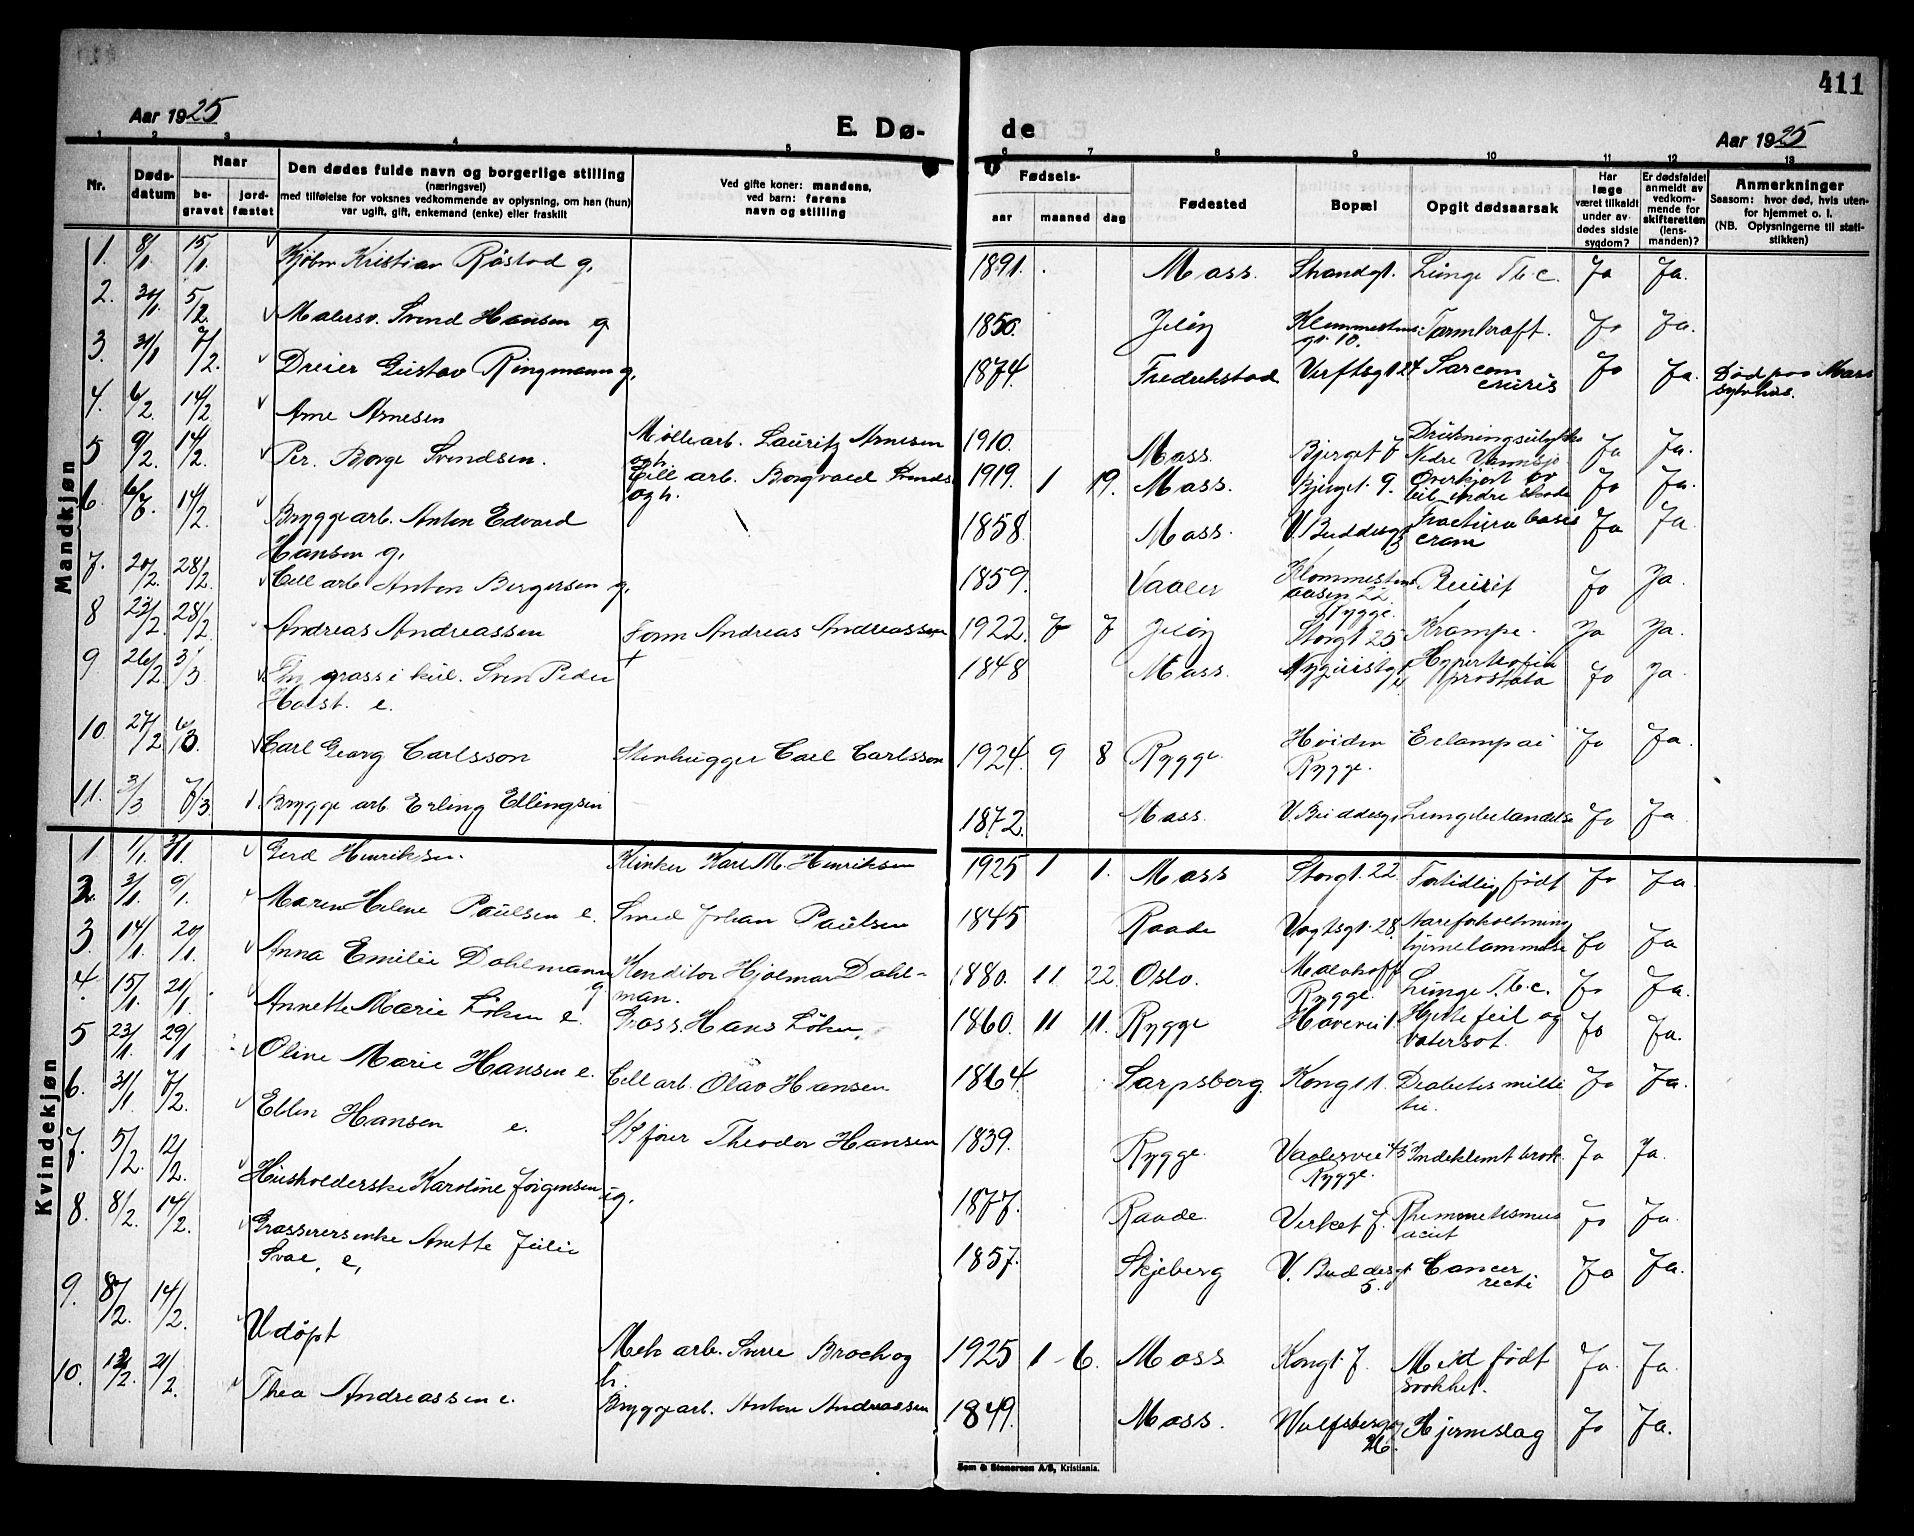 411
Aar 1925
E. Dø-
de
Aar 1925
1 2 3 4 5 6 7 8 9 10 11 12 13
Nr.
Døds-
datum
Naar
be-
gravet
jord-
fæstet
Den dødes fulde navn og borgerlige stilling
(næringsvei)
med tilføielse for voksnes vedkommende av oplysning, om han (hun)
var ugift, gift, enkemand (enke) eller fraskilt
Ved gifte koner: mandens,
ved barn: farens
navn og stilling
Fødsels-
aar maaned dag
Fødested
Bopæl
Opgit dødsaarsak
Har
læge
været tilkaldt
under av-
dødes sidste
sygdom?
Er dødsfaldet
anmeldt av
vedkom-
mende for
skifteretten
(lens-
manden)?
Anmerkninger
Saasom: hvor død, hvis uten-
for hjemmet o. l.
(NB. Oplysningerne til stati-
stikken)
Mandkjøn
1. 8/1 15/1 Kjøbm Kristian Råstad g. 1891. Moss. Strandgt. Lunge Tbc. Ja Ja.
2. 5/2 Malersv. Svend Hansen g. 1850. Jeløy gt. 10. Tarmkræft. Ja Ja.
3. 31/1 7/2 Dreier Gustav Ringmann g. 1874. Fredrikstad Verftsgt 24 Sarcom
cruris Ja Ja. Død paa Moss
sykehus.
4. 6/2 14/2 Arne Arnesen Møllearb. Lauritz Arnesen
og h. 1910. Moss. Bjerget 7 Drukningsulykke
Nedre Vannsjø Ja Ja.
5 9/2 14/2 Per. Borge Svendsen. Cell arb. Borgvald
og h. 1919. 1 19. Moss. Bjerget. 9. Overkjørt av
bil indre skade Ja Ja.
6. 14/2 Bryggearb. Anton Edvard
Hansen g. 1858. Moss. V. Buddesgt Fractura basis
cram Ja Ja
7. 20/2 28/2 Cell arb Anton Bergersen g. 1859. Vaaler
aasen 22
Rygge Ja Ja.
8 23/2 28/2 Andreas Andreassen Form Andreas Andreassen 1922. 7 7 Jeløy Storgt 25 Krampe. Ja Ja.
9 26/2 3/3 Fhv grosse i kul. Sven Peder
Holst. e. + 1848 Moss.
prostata Ja Ja
10 27/2 6/3. Carl Georg Carlsson Stenhugger Carl Carlsson 1924. 9 8 Rygge Høiden
Rygge. Eclampai Ja Ja.
11. 3/3 7/3 Brygge arb Erling Ellingsen 1872. Moss. V. Buddesgt Lungebetændelse Ja Ja.
Kvindekjøn
1 1/1. 3/1. Gerd Henriksen. Klinker Karl M. Henriksen 1925 1 1. Moss Storgt. 22 Fortidlig født Ja Ja
2. 3/1 9/1. Maren Helene Paulsen e. Smed Johan Paulsen 1845 Raade Vogtsgt. 28. Aareforkalkning
hjernelammelse Ja Ja
3 14/1 20/1. Anna Emilie Dahlmann
g Konditor Hjalmar Dahl-
man. 1880. 11 22. Oslo.
Rygge. Lunge T.b.c. Ja Ja.
4. 15/1 21/1 Annette Marie Løken e. Gross. Hans Løken 1860. 11 11. Rygge Havevei 1. Hjerte feil og
vatersot. Ja Ja.
5 23/1 29/1 Oline Marie Hansen e. Cell arb. Olav Hansen 1864 Sarpsborg Kongst 1. Diabetes milli
tii. Ja Ja.
6. 31/1 7/2. Ellen Hansen e. Skfører Theodor Hansen 1839. Rygge. Vaalervei 45
Rygge. Indeklemt brok Ja Ja.
7. 5/2. 12/2 Husholderske Karoline Jørgensen ug. 1877. Raade. Verket 7. Rhemmetismus
acut Ja Ja.
8. 8/2. 14/2. Grosserersenke Anette Julie
Svae, e, 1857. Skjeberg V. Buddesgt
5. Cancer
recti Ja Ja.
9. 8/2. 14/2. Udøpt Mek arb. Sverre Brock og
h. 1925 1 - 6. Moss Kongt. 7. Med født
svakhet. Ja. Ja.
10. 12/2. 21/2. Thea Andreassen e. Bryggearb. Anton Andreassen 1849. Moss.
26. Hjerneslag Ja Ja.
Sem & Stenersen A/S, Kristiania.